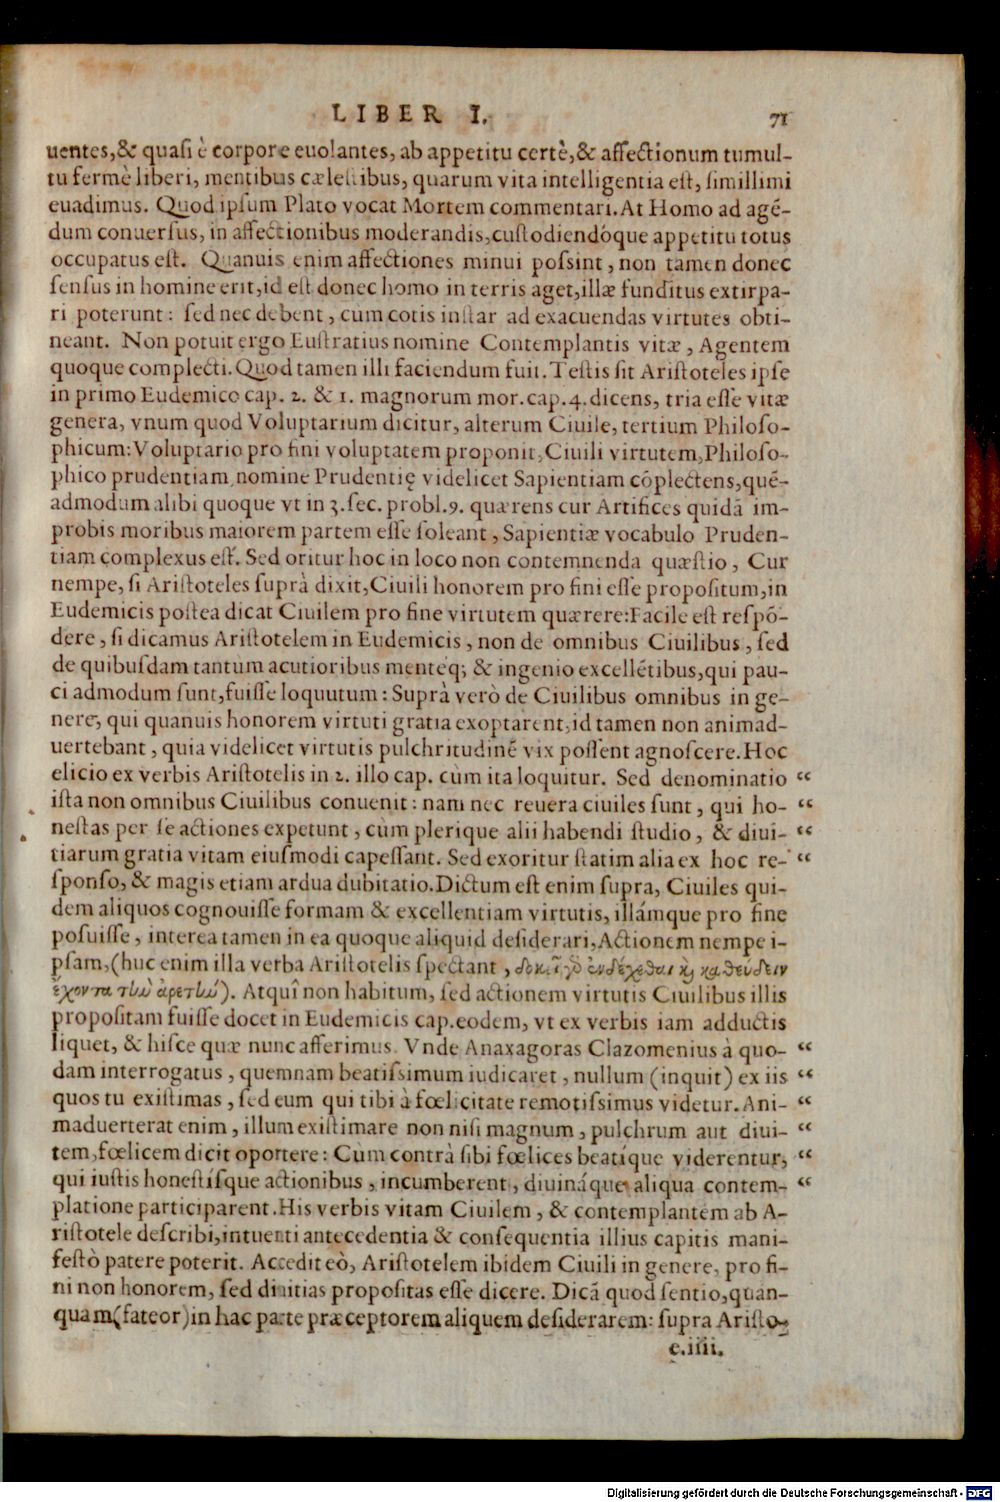 LIBER I. 71
uentes,& quasi è corpore euolantes, ab appetitu certè,& affectionum tumul-
tu fermè liberi, mentibus cælestibus, quarum vita intelligentia est, simillimi
euadimus. Quod ipsum Plato vocat Mortem commentari. At Homo ad agē-
dum conuersus, in affectionibus moderandis, custodiendóque appetitu totus
occupatus est. Quanuis enim affectiones minui possint, non tamen donec
sensus in homine erit, id est donec homo in terris aget, illæ funditus extirpa-
ri poterunt: sed nec debent, cum cotis instar ad exacuendas virtutes obti-
neant. Non potuit ergo Eustratius nomine Contemplantis vitæ, Agentem
quoque complecti. Quod tamen illi faciendum fuit. Testis sit Aristoteles ipse
in primo Eudemico cap. 2. & 1. magnorum mor. cap. 4. dicens, tria esse vitæ
genera, vnum quod Voluptarium dicitur, alterum Ciuile, tertium Philoso-
phicum: Voluptario pro fini voluptatem proponit, Ciuili virtutem, Philoso-
phico prudentiam, nomine Prudentię videlicet Sapientiam cōplectens, quē-
admodum alibi quoque vt in 3. sec. probl. 9. quærens cur Artifices quidā im-
probis moribus maiorem partem esse soleant, Sapientiæ vocabulo Pruden-
tiam complexus est. Sed oritur hoc in loco non contemnenda quæstio, Cur
nempe, si Aristoteles suprà dixit, Ciuili honorem pro fini esse propositum, in
Eudemicis postea dicat Ciuilem pro fine virtutem quærere: Facile est respō-
dere, si dicamus Aristotelem in Eudemicis, non de omnibus Ciuilibus, sed
de quibusdam tantum acutioribus menteq; & ingenio excellētibus, qui pau-
ci admodum sunt, fuisse loquutum: Suprà verò de Ciuilibus omnibus in ge-
nere, qui quanuis honorem virtuti gratia exoptarent, id tamen non animad-
uertebant, quia videlicet virtutis pulchritudinē vix possent agnoscere. Hoc
elicio ex verbis Aristotelis in 2. illo cap. cùm ita loquitur. Sed denominatio “
ista non omnibus Ciuilibus conuenit: nam nec reuera ciuiles sunt, qui ho- “
nestas per se actiones expetunt, cùm plerique alii habendi studio, & diui- “
tiarum gratia vitam eiusmodi capessant. Sed exoritur statim alia ex hoc re- “
sponso, & magis etiam ardua dubitatio. Dictum est enim supra, Ciuiles qui-
dem aliquos cognouisse formam & excellentiam virtutis, illámque pro fine
posuisse, interea tamen in ea quoque aliquid desiderari, Actionem nempe i-
psam, (huc enim illa verba Aristotelis spectant, δοκεῖ γὸ ἐνδέχεσθαι κὶ καθεύδειν
ἔχοντα τὼ ἀρετὼ). Atquî non habitum, sed actionem virtutis Ciuilibus illis
propositam fuisse docet in Eudemicis cap. eodem, vt ex verbis iam adductis
liquet, & hisce quæ nunc afferimus. Vnde Anaxagoras Clazomenius à quo- “
dam interrogatus, quemnam beatissimum iudicaret, nullum (inquit) ex iis “
quos tu existimas, sed eum qui tibi à fœlicitate remotissimus videtur. Ani- “
maduerterat enim, illum existimare non nisi magnum, pulchrum aut diui- “
tem, fœlicem dicit oportere: Cùm contrà sibi fœlices beatíque viderentur, “
qui iustis honestísque actionibus, incumberent, diuináque aliqua contem- “
platione participarent. His verbis vitam Ciuilem, & contemplantem ab A-
ristotele describi, intuenti antecedentia & consequentia illius capitis mani-
festò patere poterit. Accedit eò, Aristotelem ibidem Ciuili in genere, pro fi-
ni non honorem, sed diuitias propositas esse dicere. Dicā quod sentio, quan-
quam (fateor) in hac parte præceptorem aliquem desiderarem: supra Aristo-
e.iiii.
Digitalisierung gefördert durch die Deutsche Forschungsgemeinschaft - DFG